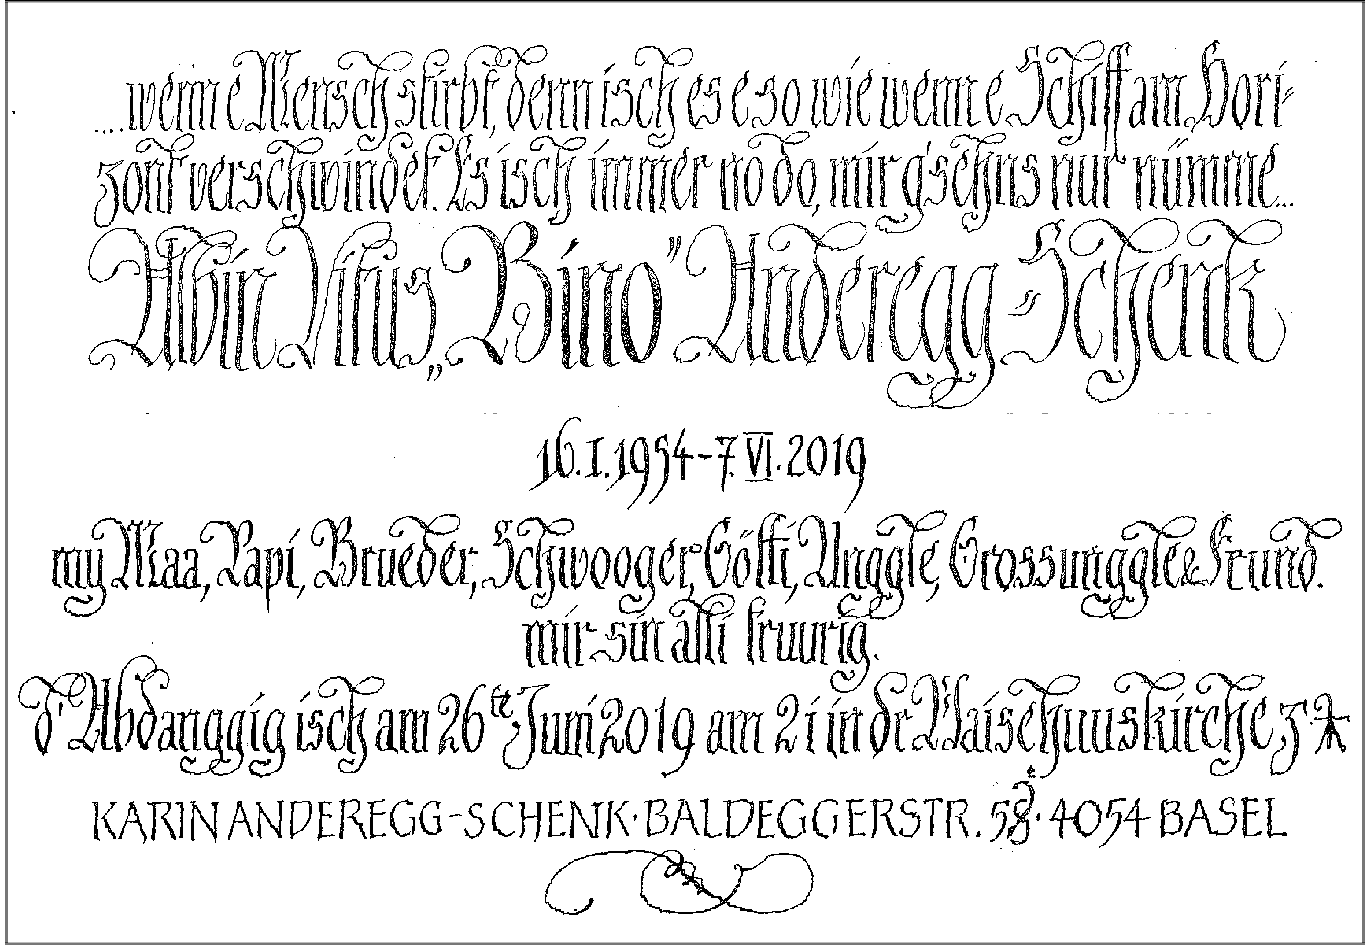 ....wenn e Mensch stirbt, denn isch es e so wie wenn e Schiff am Hori-
zont verschwindet. Es isch immer no do, mir g'sehns nur nümme...
Albin Vitus „Bino" Anderegg-Schenk
16.I.1954-7.VI.2019
my Maa, Papi, Brueder, Schwooger, Götti, Unggle, Grossunggle & Frund.
mir sin alli truurig.
d'Abdanggig isch am 26te Juni 2019 am 2i in dr Waisehuuskirche, z
KARIN ANDEREGG-SCHENK·BALDEGGERSTR. 58·4054 BASEL